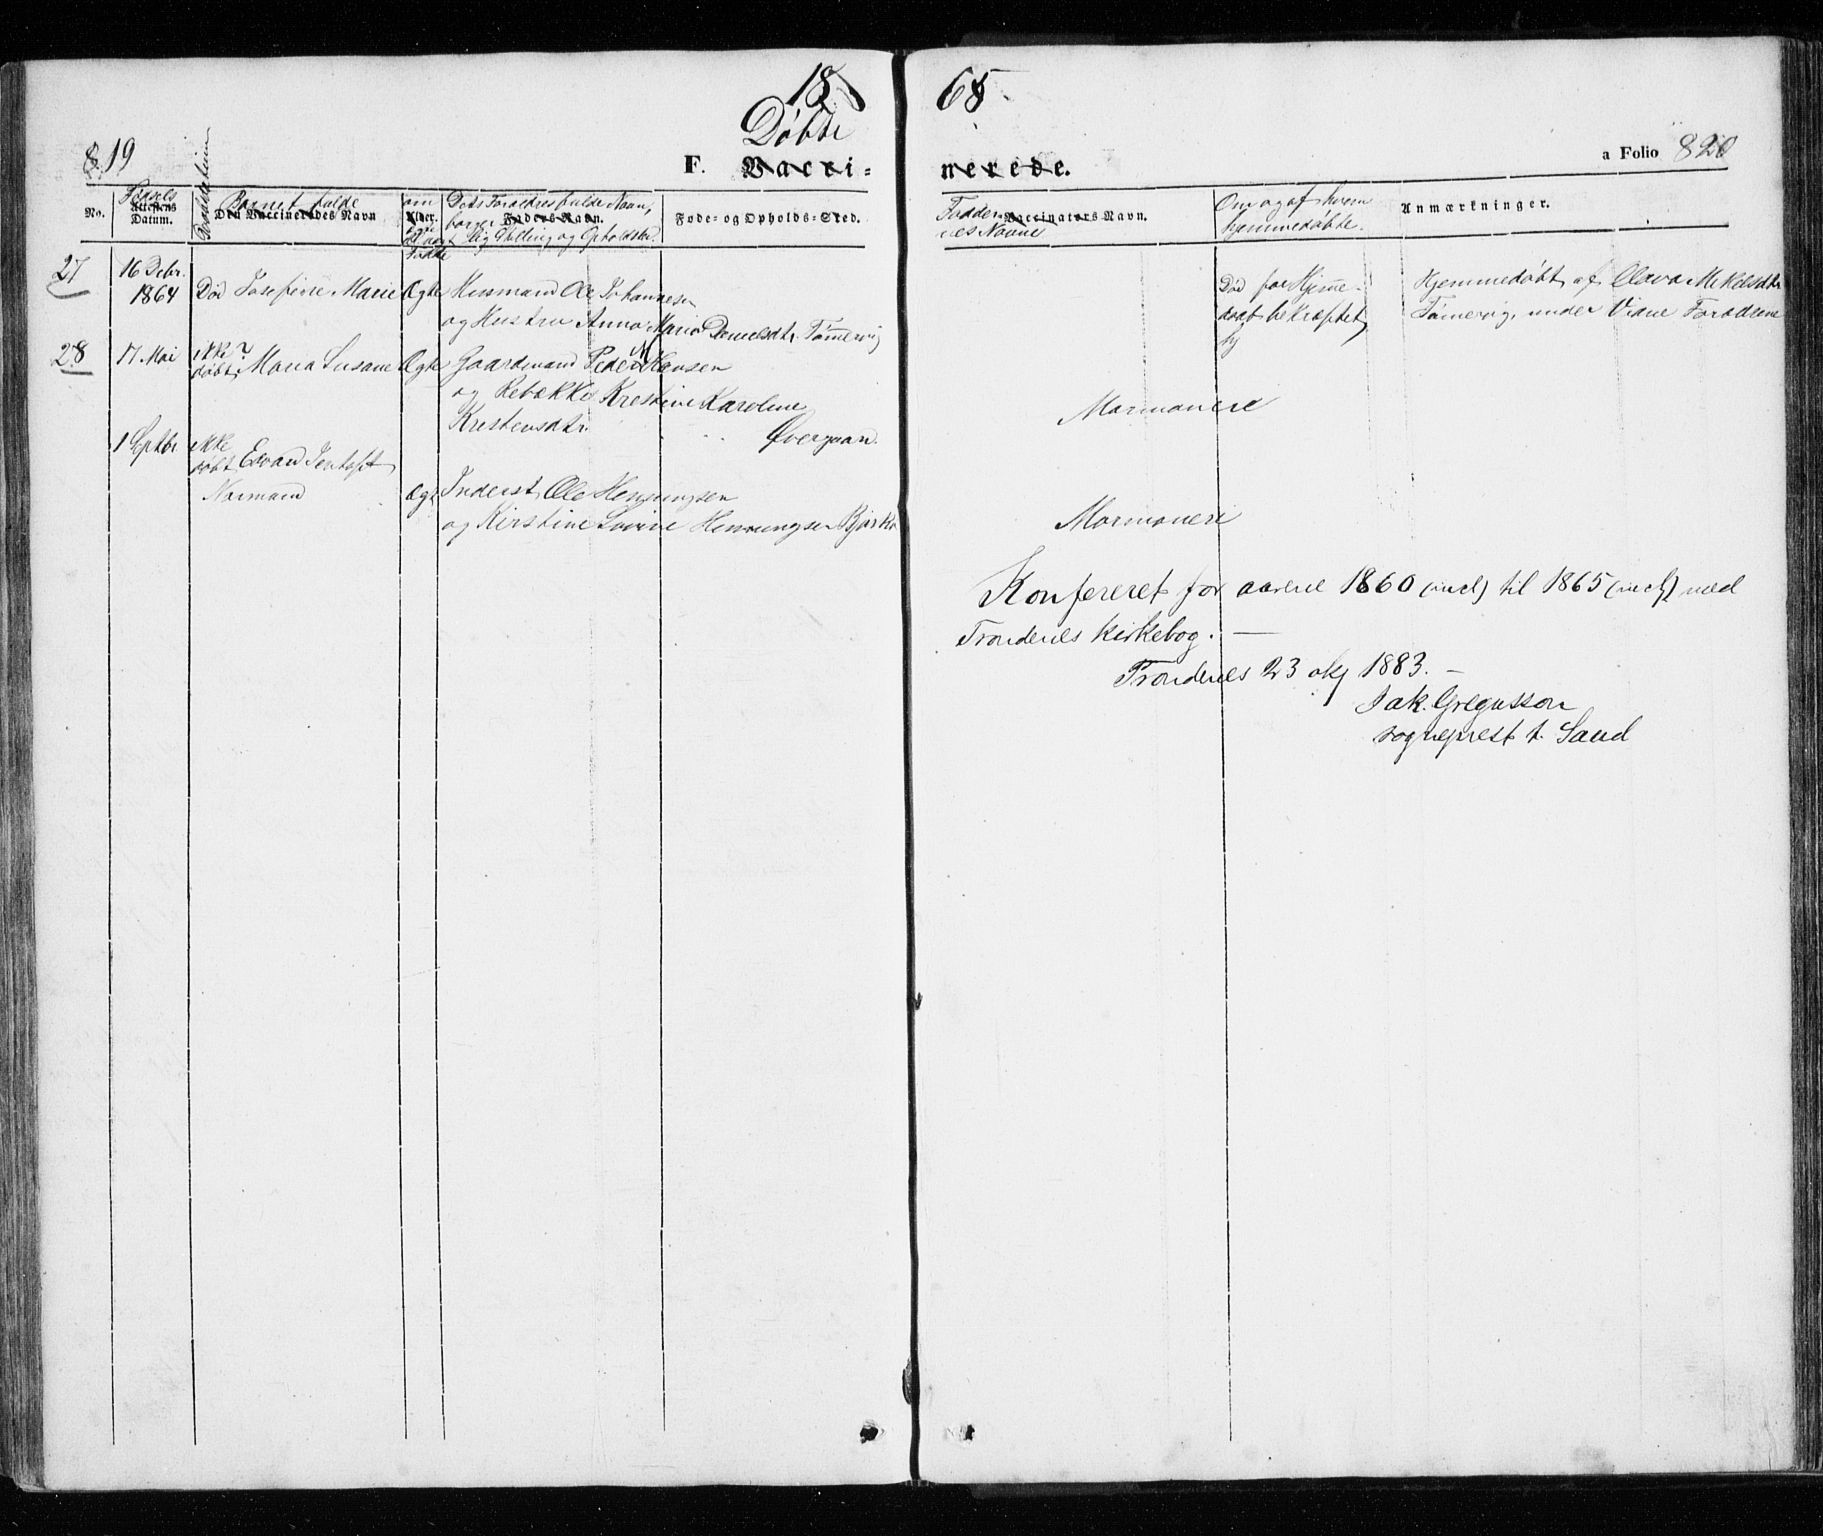 1865.
Døbte
819
F. Vacci-
nerede.
a Folio 820
No.
Fødsels
Attestens
Datum.
Barnets fulde
Den Vaccineredes Navn
Alder.
Dets Forældres fulde Navn,
Faders Navn.
Stilling og Opholdsted.
Føde- og Opholds-Sted.
Fadder-
nes Navne
Vaccinators Navn.
Om og af hvem
hjemmedøbte.
Anmærkninger.
27
16 Debr.
1864
Død Josefine Marie
Ægte
Husmand Ole Johannesen
og Hustru Anna Maria Danielsdtr. Tømervig
Død før Hjemme-
daab bekræftet
Hjemmedøbt af Olava Mikelsdtr
Tømervig, under Vidne Forældrene
28
17 Mai
ikke
døbt
Maria Susane
Ægte
Gaardmand Peder M Hansen
og Rebække Krestine Karoline
Krestensdtr.
Øvergaan.
Mormonere
1 Septbr
ikke
døbt
Edvard Jentoft
Normand
Ægt
Inderst Ole Henningsen
og Kirstine Lovise Henningsen Bjarkø
Mormonere
Konfereret for aarene 1860 (incl) til 1865 (incl) med
Trondenes Kirkebog. —
Trondenes 23 okt 1883. —
Jak. Gregusson
sogneprest t. Sand